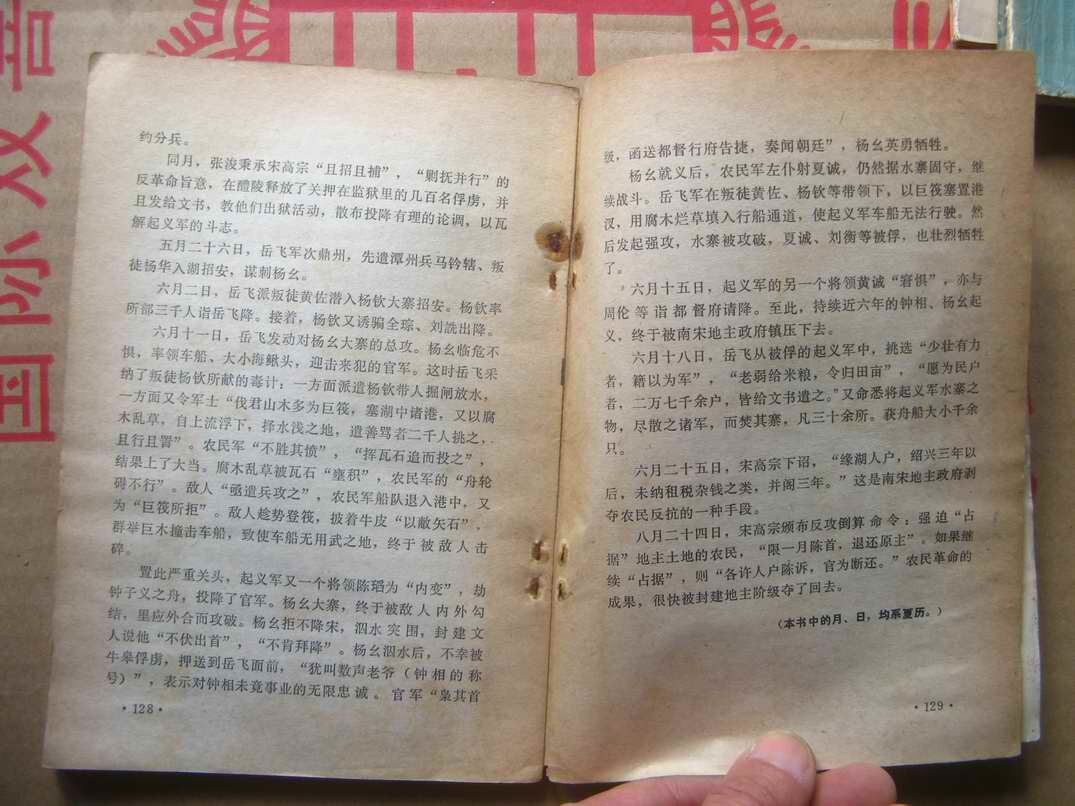 约分兵。
同月，张浚秉承宋高宗“且招且捕”，“剿抚并行”的
反革命旨意，在醴陵释放了关押在监狱里的几百名俘虏，并
且发给文书，教他们出狱活动，散布投降有理的论调，以瓦
解起义军的斗志。
五月二十六日，岳飞军次鼎州，先遣潭州兵马钤辖、叛
徒杨华入湖招安，谋刺杨幺。
六月二日，岳飞派叛徒黄佐潜入杨钦大寨招安。杨钦率
所部三千人诣岳飞降。接着，杨钦又诱骗全琮、刘诜出降。
六月十一日，岳飞发动对杨幺大寨的总攻。杨幺临危不
惧，率领车船、大小海鳅头，迎击来犯的官军。这时岳飞采
纳了叛徒杨钦所献的毒计：一方面派遣杨钦带人掘闸放水，
一方面又令军士“伐君山木多为巨筏，塞湖中诸港，又以腐
木乱草，自上流浮下，择水浅之地，遣善骂者二千人挑之，
且行且詈”。农民军“不胜其愤”，“挥瓦石追而投之”，
结果上了大当。腐木乱草被瓦石“壅积”，农民军的“舟轮
碍不行”。敌人“亟遣兵攻之”，农民军船队退入港中，又
为“巨筏所拒”。敌人趁势登筏，披着牛皮“以蔽矢石”，
群举巨木撞击车船，致使车船无用武之地，终于被敌人击
碎。
置此严重关头，起义军又一个将领陈瑫为“内变”，劫
钟子义之舟，投降了官军。杨幺大寨，终于被敌人内外勾
结，里应外合而攻破。杨幺拒不降宋，泅水突围，封建文
人说他“不伏出首”，“不肯拜降”。杨幺泅水后，不幸被
牛皋俘虏，押送到岳飞面前，“犹叫数声老爷（钟相的称
号）”，表示对钟相未竟事业的无限忠诚。官军“枭其首
·128·
级，函送都督行府告捷，奏闻朝廷”，杨幺英勇牺牲。
杨幺就义后，农民军左仆射夏诚，仍然据水寨固守，继
续战斗。岳飞军在叛徒黄佐、杨钦等带领下，以巨筏塞置港
汊，用腐木烂草填入行船通道，使起义军车船无法行驶。然
后发起强攻，水寨被攻破，夏诚、刘衡等被俘，也壮烈牺牲
了。
六月十五日，起义军的另一个将领黄诚“窘惧”，亦与
周伦等诣都督府请降。至此，持续近六年的钟相、杨幺起
义，终于被南宋地主政府镇压下去。
六月十八日，岳飞从被俘的起义军中，挑选“少壮有力
者，籍以为军”，“老弱给米粮，令归田亩”，“愿为民户
者，二万七千余户，皆给文书遣之。”又命悉将起义军水寨之
物，尽散之诸军，而焚其寨，凡三十余所。获舟船大小千余
只。
六月二十五日，宋高宗下诏，“缘湖人户，绍兴三年以
后，未纳租税杂钱之类，并阁三年。”这是南宋地主政府剥
夺农民反抗的一种手段。
八月二十四日，宋高宗颁布反攻倒算命令：强迫“占
据”地主土地的农民，“限一月陈首，退还原主”。如果继
续“占据”，则“各许人户陈诉，官为断还。”农民革命的
成果，很快被封建地主阶级夺了回去。
（本书中的月、日，均系夏历。）
·129·
国际双喜